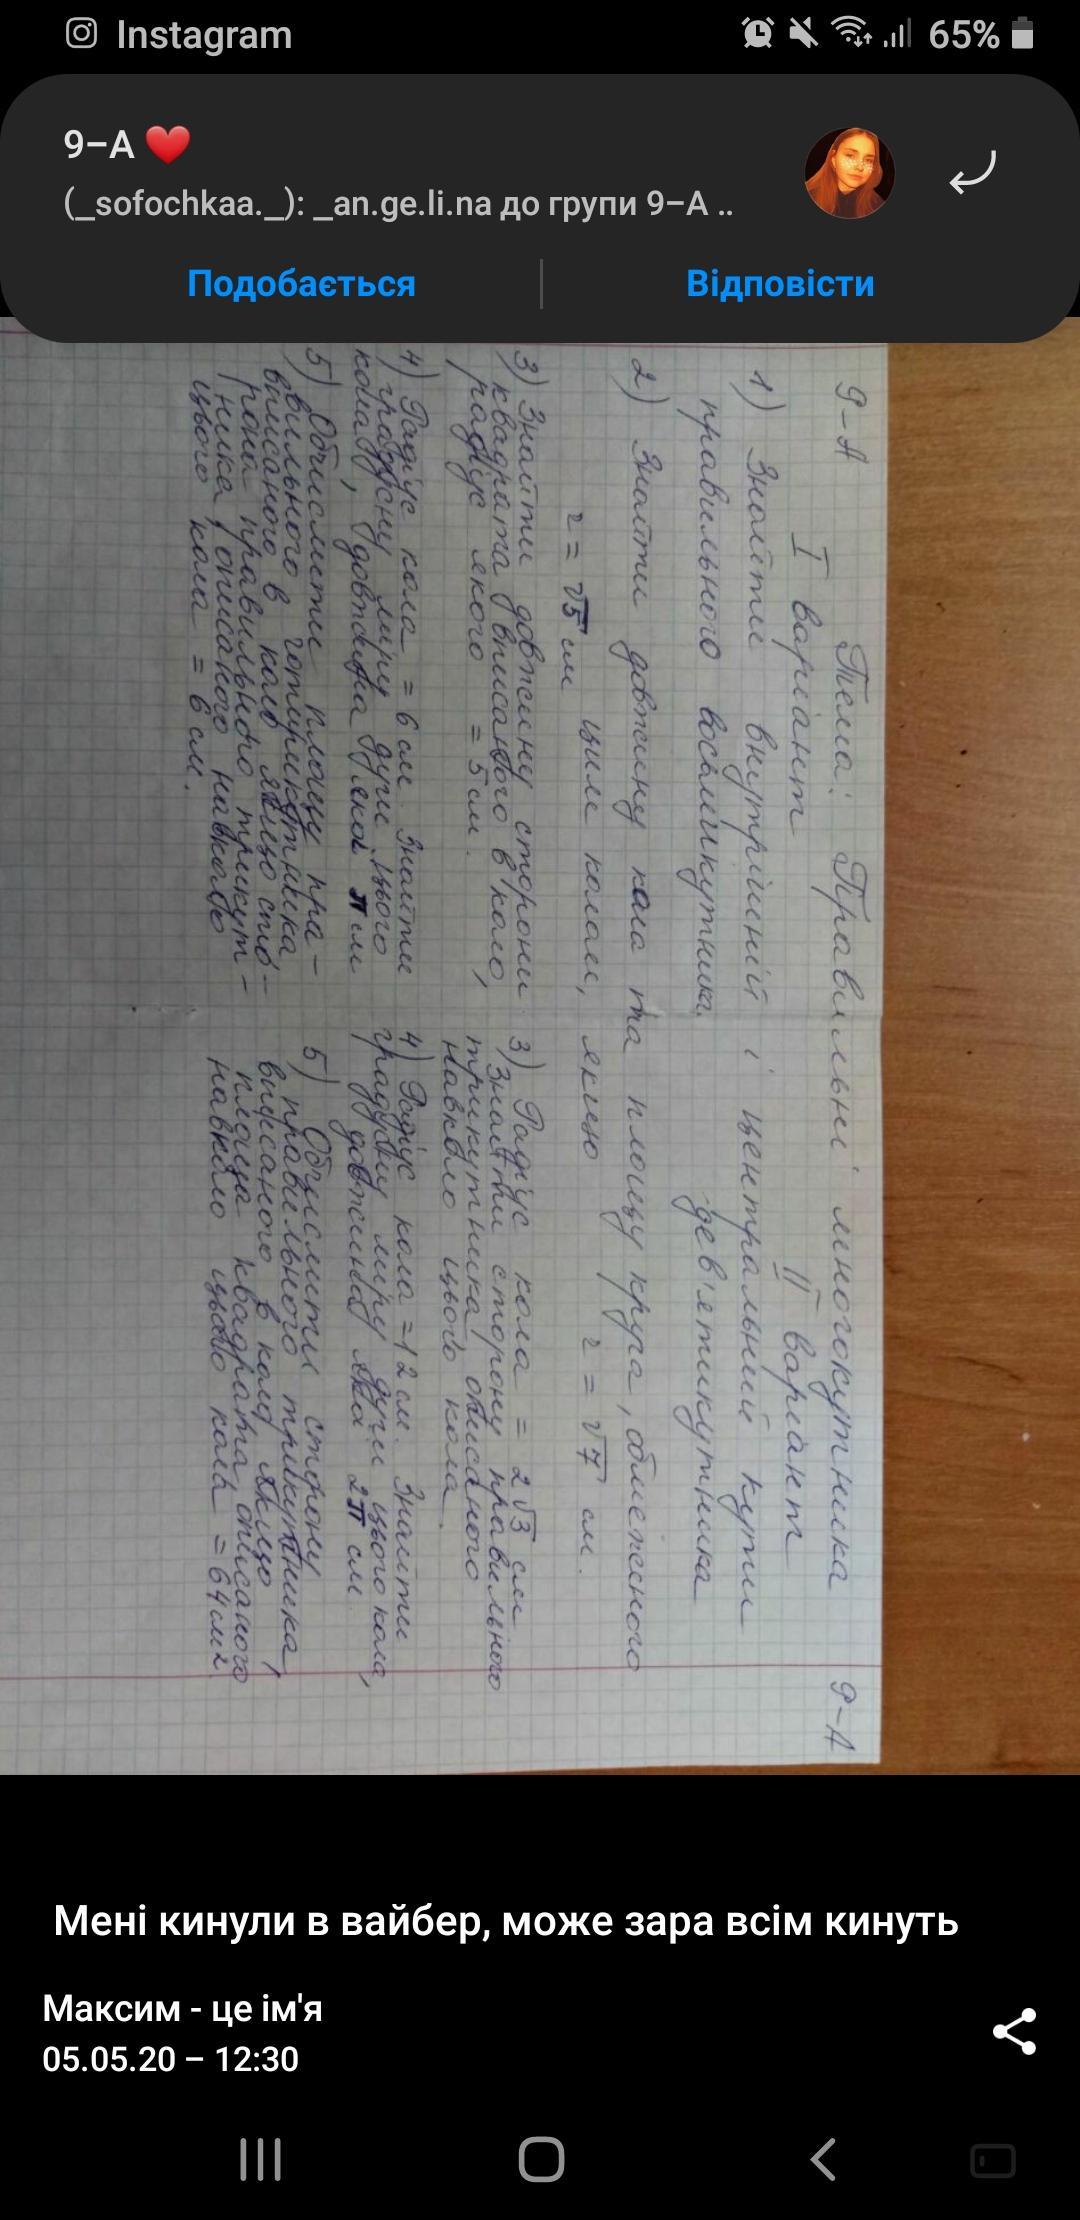 Instagram
65%
9–А ❤️
(_sofochkaa._): _an.ge.li.na до групи 9–А ..
Подобається
Відповісти
9-А Тема: Правильні многокутника 9-А
I варіант II варіант
1) Знайти внутрішній і центральний кути
правильного восьмикутника, дев'ятикутника
2) Знайти довжину кола та площу круга, обмеженого
цим колом, якщо
r = √5 см r = √7 см.
3) Знайти довжину сторони
квадрата вписаного в коло,
радіус якого = 5 см.
4) Радіус кола = 6 см. Знайти
градусну міру дуги цього
кола, довжина якої π см
5) Обчислити площу пра-
вильного чотирикутника,
вписаного в коло якщо сто-
рони правильного трикут-
ника, описаного навколо
цього кола = 6 см.
3) Радіус кола = 2√3 см
Знайти сторону правильного
трикутника, описаного
навколо цього кола.
4) Радіус кола = 12 см. Знайти
градусну міру дуги цього кола,
довжиною яка 2π см
5) Обчислити сторону
правильного трикутника,
вписаного в коло, якщо
площа квадрата описаного
навколо цього кола = 64 см2
Мені кинули в вайбер, може зара всім кинуть
Максим - це ім'я
05.05.20 – 12:30